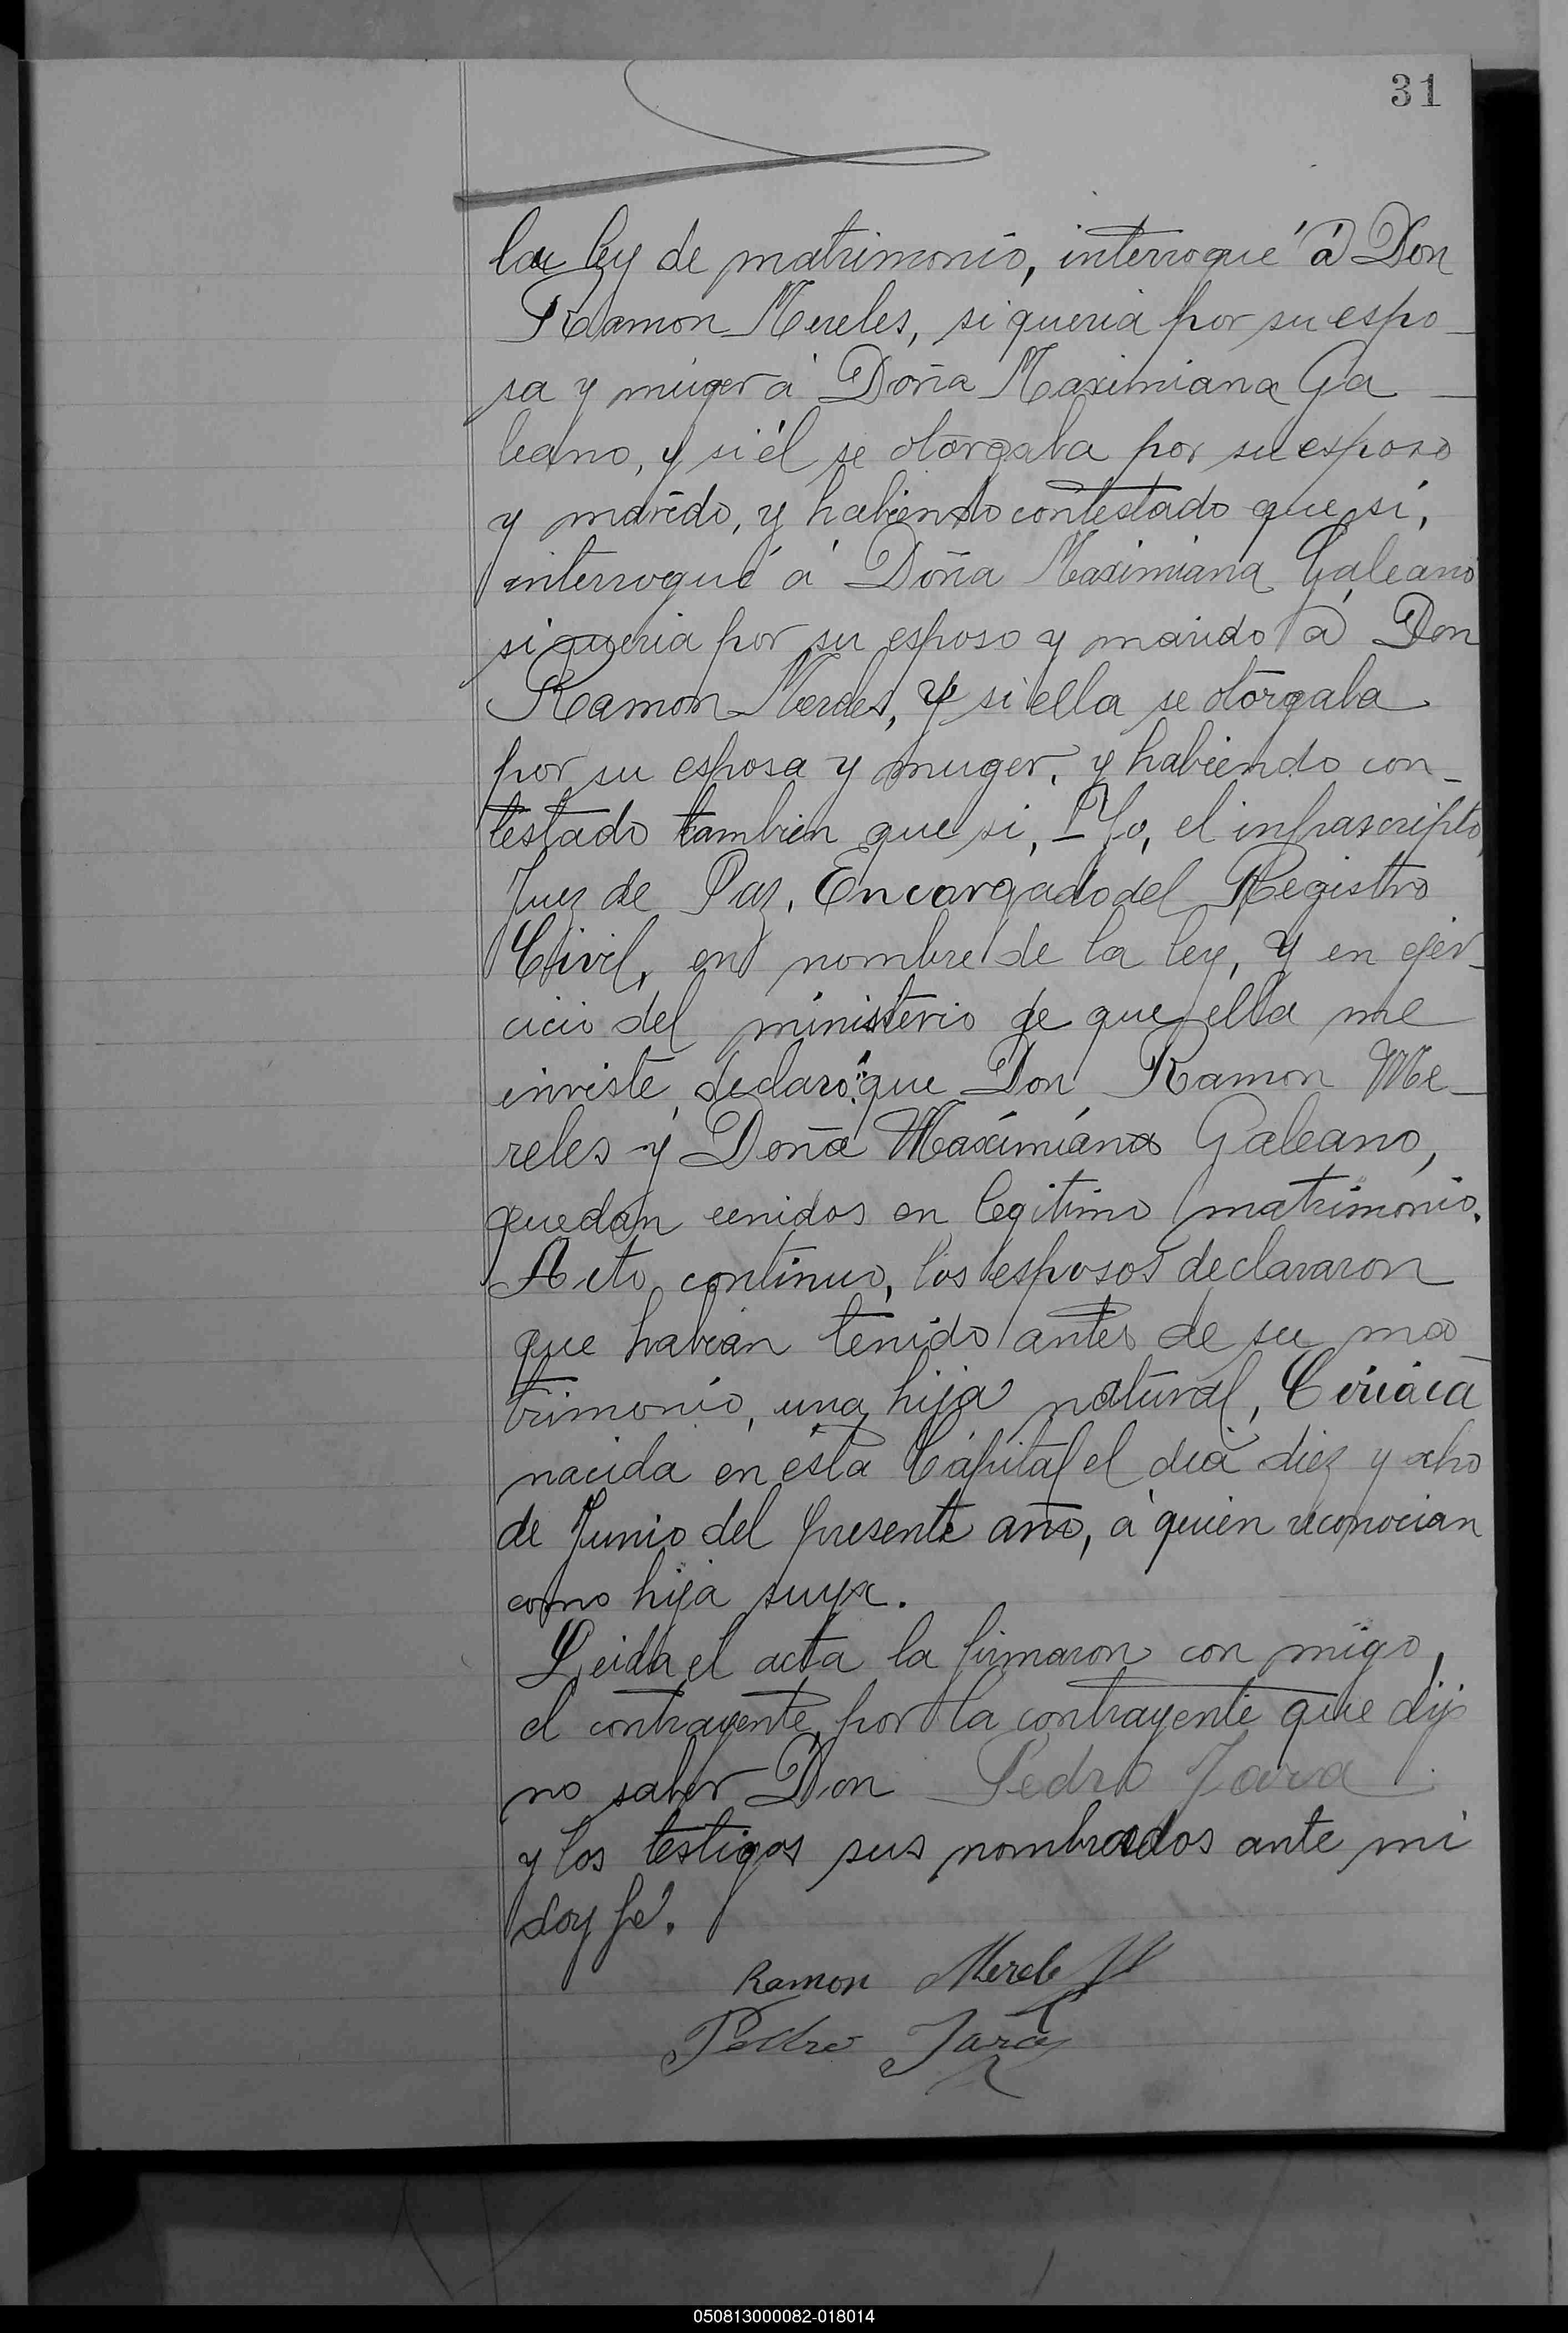 31
la ley de matrimonio, interrogué á Don
Ramon Mereles, si queria por su espo-
sa y muger á Doña Maximiana Ga-
leano, y si él se otorgaba por su esposo
y marido, y habiendo contestado que si,
interrogué á Doña Maximiana Galeano
si queria por su esposo y marido á Don
Ramon Mereles, y si ella se otorgaba
por su esposa y muger, y habiendo con-
testado tambien que si, - Yo, el infrascripto,
Juez de Paz, Encargado del Registro
Civil, en nombre de la ley, y en ejer-
cicio del ministerio de que ella me
inviste, declaro: que Don Ramon Me-
reles y Doña Maximiana Galeano,
quedan unidos en legitimo matrimonio.
Acto continuo, los esposos declararon
que habian tenido antes de su ma-
trimonio, una hija natural, Ciriaca
nacida en ésta Capital el dia diez y ocho
de Junio del presente año, á quien reconocian
como hija suya.
Leida el acta la firmaron con migo,
el contrayente, por la contrayente que dijo
no saber Don Pedro Jara
y los testigos sus nombrados ante mi
doy fé.
Ramon Mereles
Pedro Jara
050813000082-018014